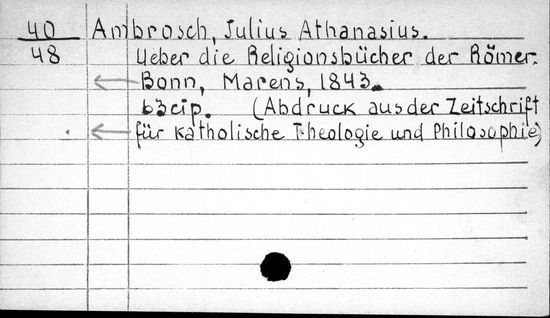 40 Ambrosch, Julius Athanasius.
48 Ueber die Religionsbücher der Römer.
Bonn, Marens, 1843.
63cip. (Abdruck aus der Zeitschrift
für katholische Theologie und Philosophie)